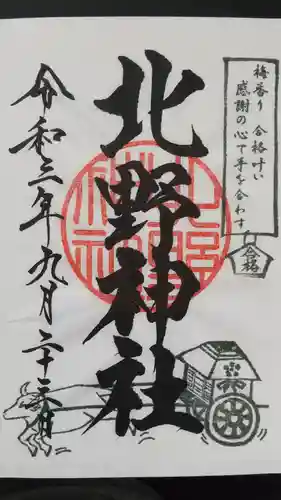 梅香り 合格叶い
感謝の心で手を合わす
合格
北野神社
令和三年九月二十三日